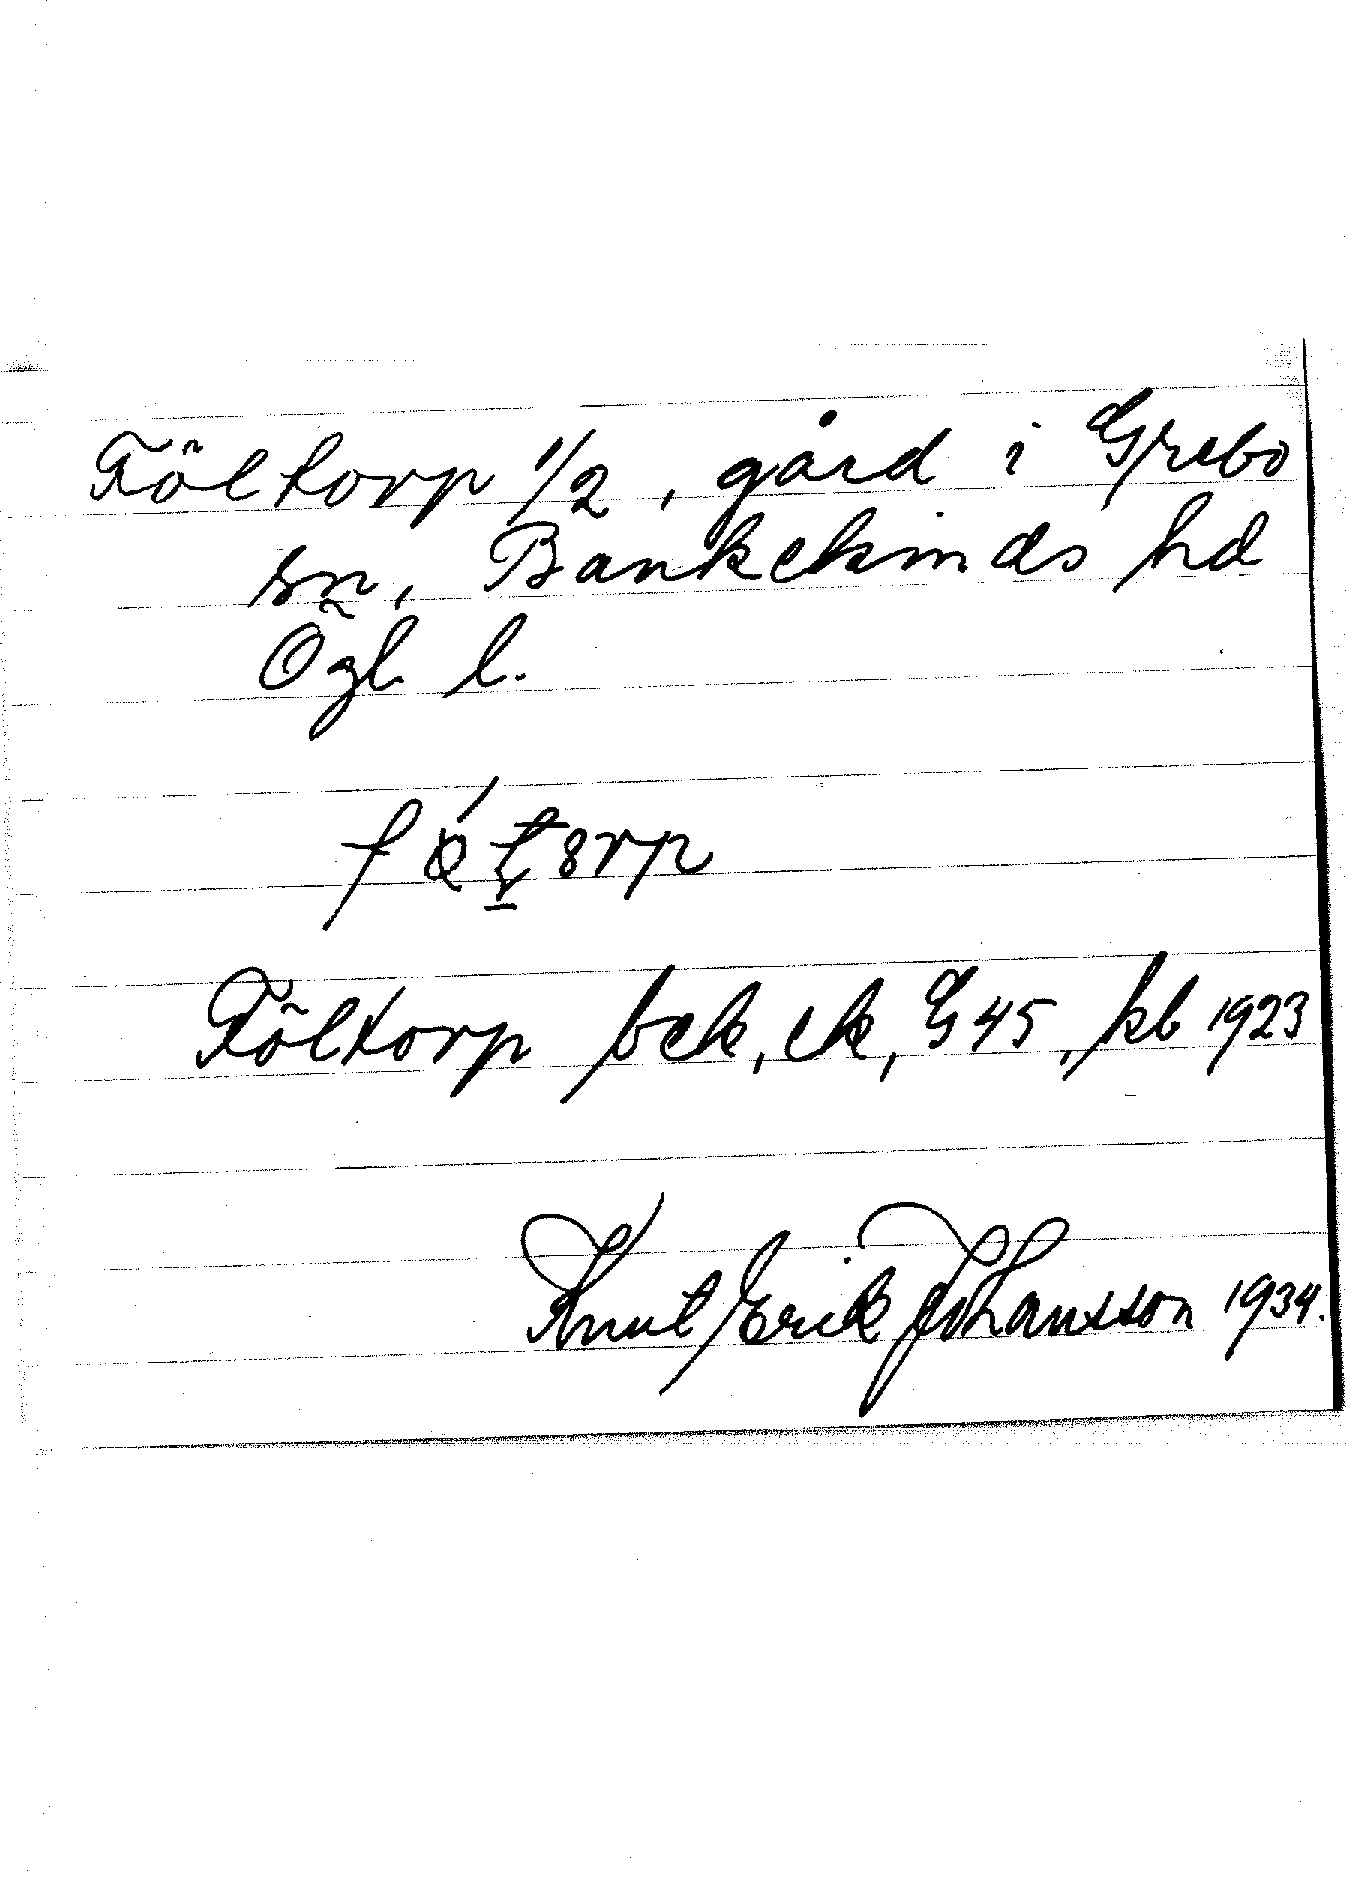 Föltorp 1/2, gård i Grebo
sn, Bankekinds hd
Ögl l.
Föltorp bek, ek, G 45, kb 1923
Knut Erik Johansson 1934.